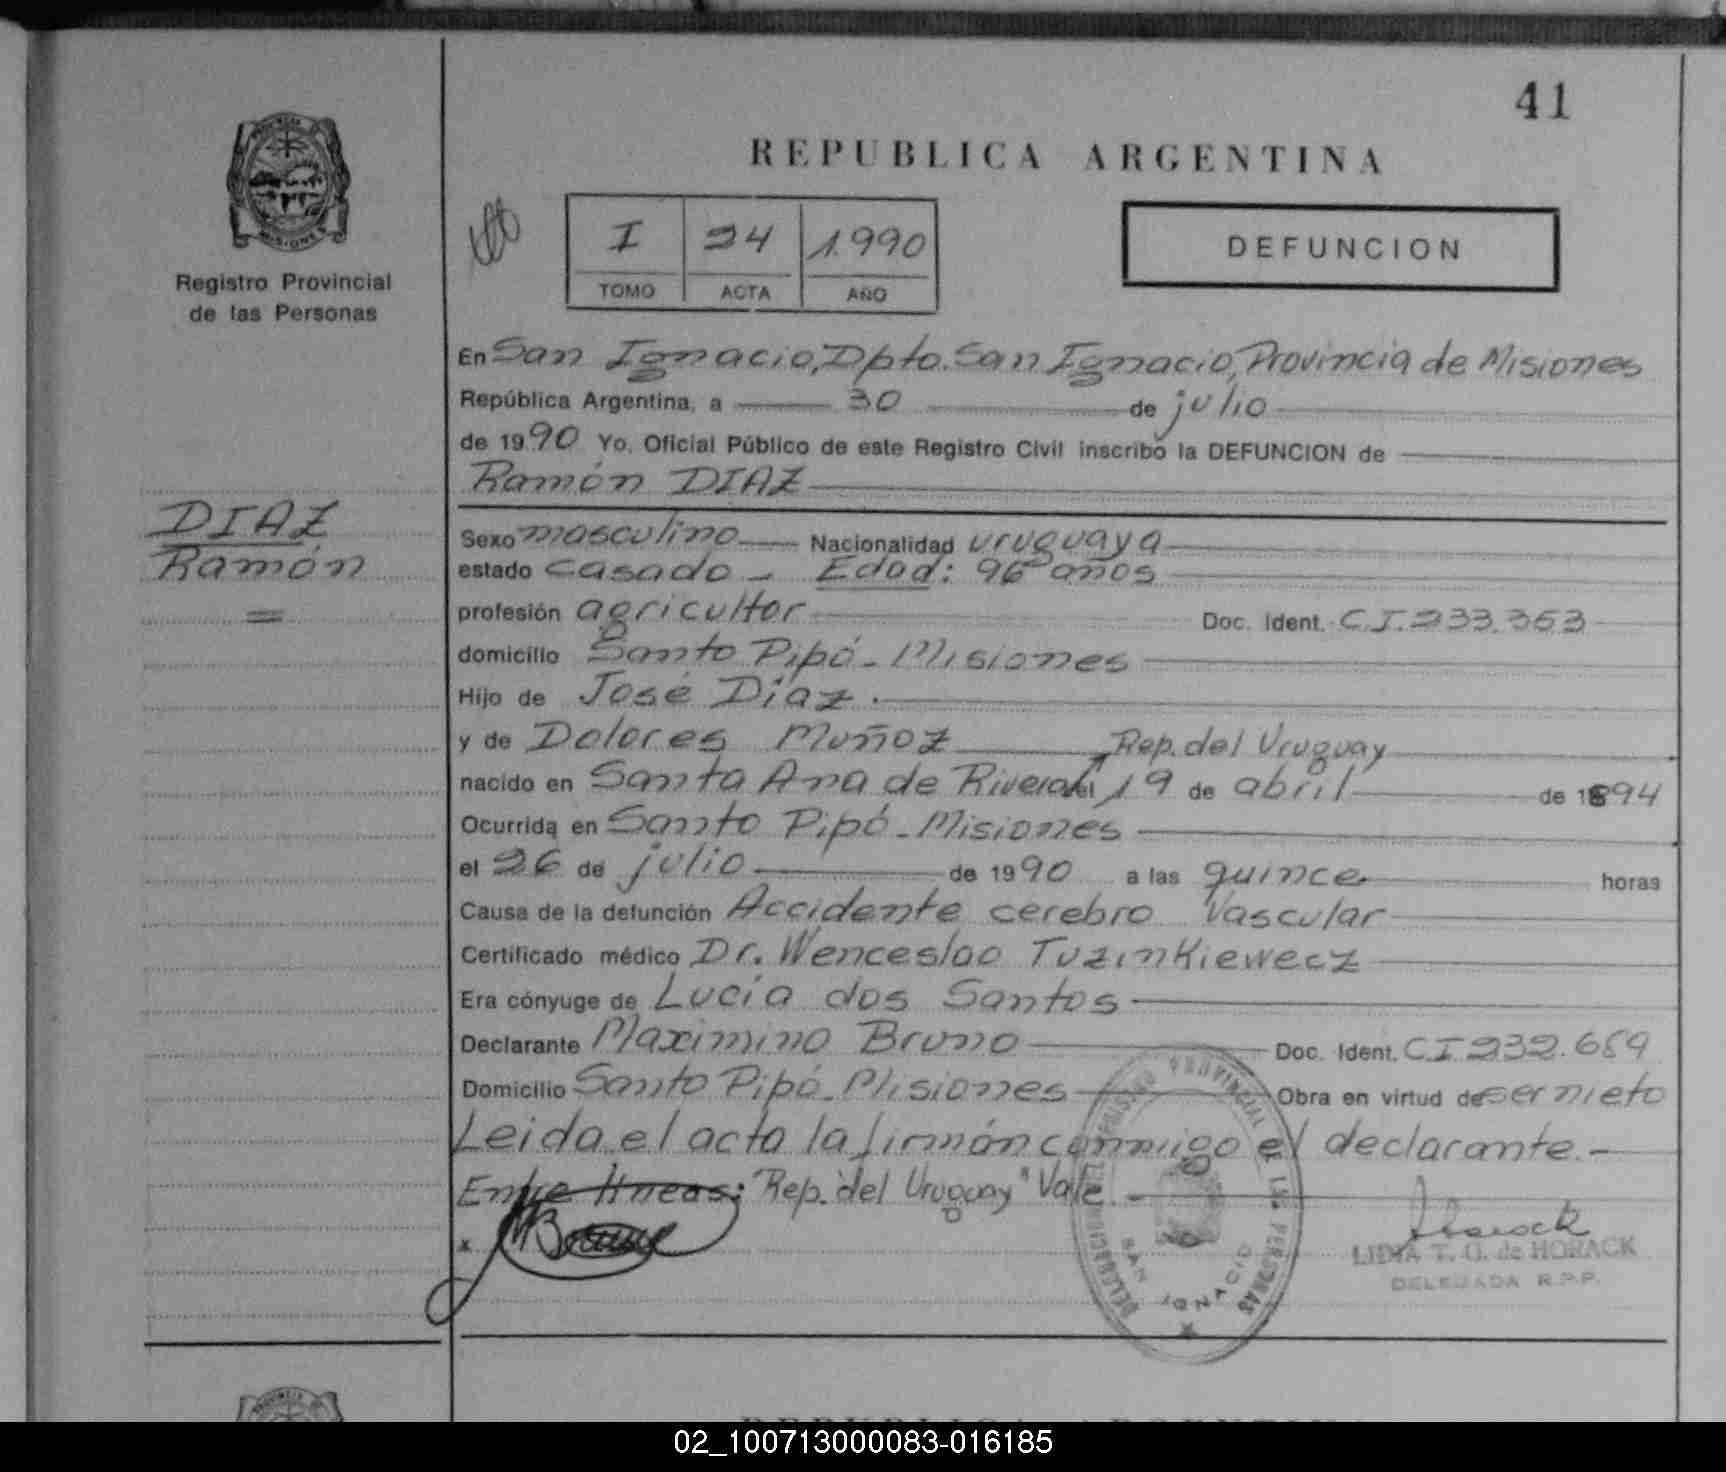 41
REPUBLICA ARGENTINA
PROVINCIA DE
MISIONES
Registro Provincial
de las Personas
I 24 1.990
TOMO ACTA AÑO
DEFUNCION
En San Ignacio, Dpto. San Ignacio, Provincia de Misiones
República Argentina, a 30 de julio
de 1990 Yo, Oficial Público de este Registro Civil inscribo la DEFUNCION de
Ramón DIAZ
DIAZ
Ramón
Sexo masculino Nacionalidad uruguaya
estado casado - Edad: 96 años
profesión agricultor Doc. Ident. C.I. 233.353
domicilio Santo Pipó - Misiones
Hijo de José Diaz.
y de Dolores Muñoz Rep. del Uruguay
nacido en Santa Ana de Rivera el 19 de abril de 1894
Ocurrida en Santo Pipó - Misiones
el 26 de julio de 1990 a las quince horas
Causa de la defunción Accidente cerebro Vascular
Certificado médico Dr. Wenceslao Tuzinkiewecz
Era cónyuge de Lucía dos Santos
Declarante Maximino Bruno Doc. Ident. C.I. 232.659
Domicilio Santo Pipó - Misiones Obra en virtud de ser nieto
Leida el acta la firmán conmigo el declarante.-
Entre lineas: "Rep. del Uruguay" Vale.-
x
LIDIA T. G. de HORACK
DELEGADA R.P.P.
DELEGACION DEL REGISTRO PROVINCIAL DE LAS PERSONAS
SAN IGNACIO
REPUBLICA ARGENTINA
02_100713000083-016185